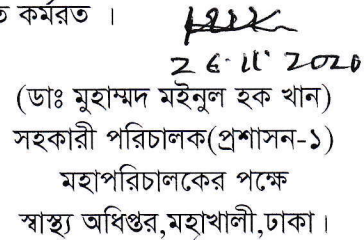 ত কর্মরত ।
26.11.2020
(ডাঃ মুহাম্মদ মইনুল হক খান)
সহকারী পরিচালক(প্রশাসন-১)
মহাপরিচালকের পক্ষে
স্বাস্থ্য অধিপ্তর,মহাখালী,ঢাকা।